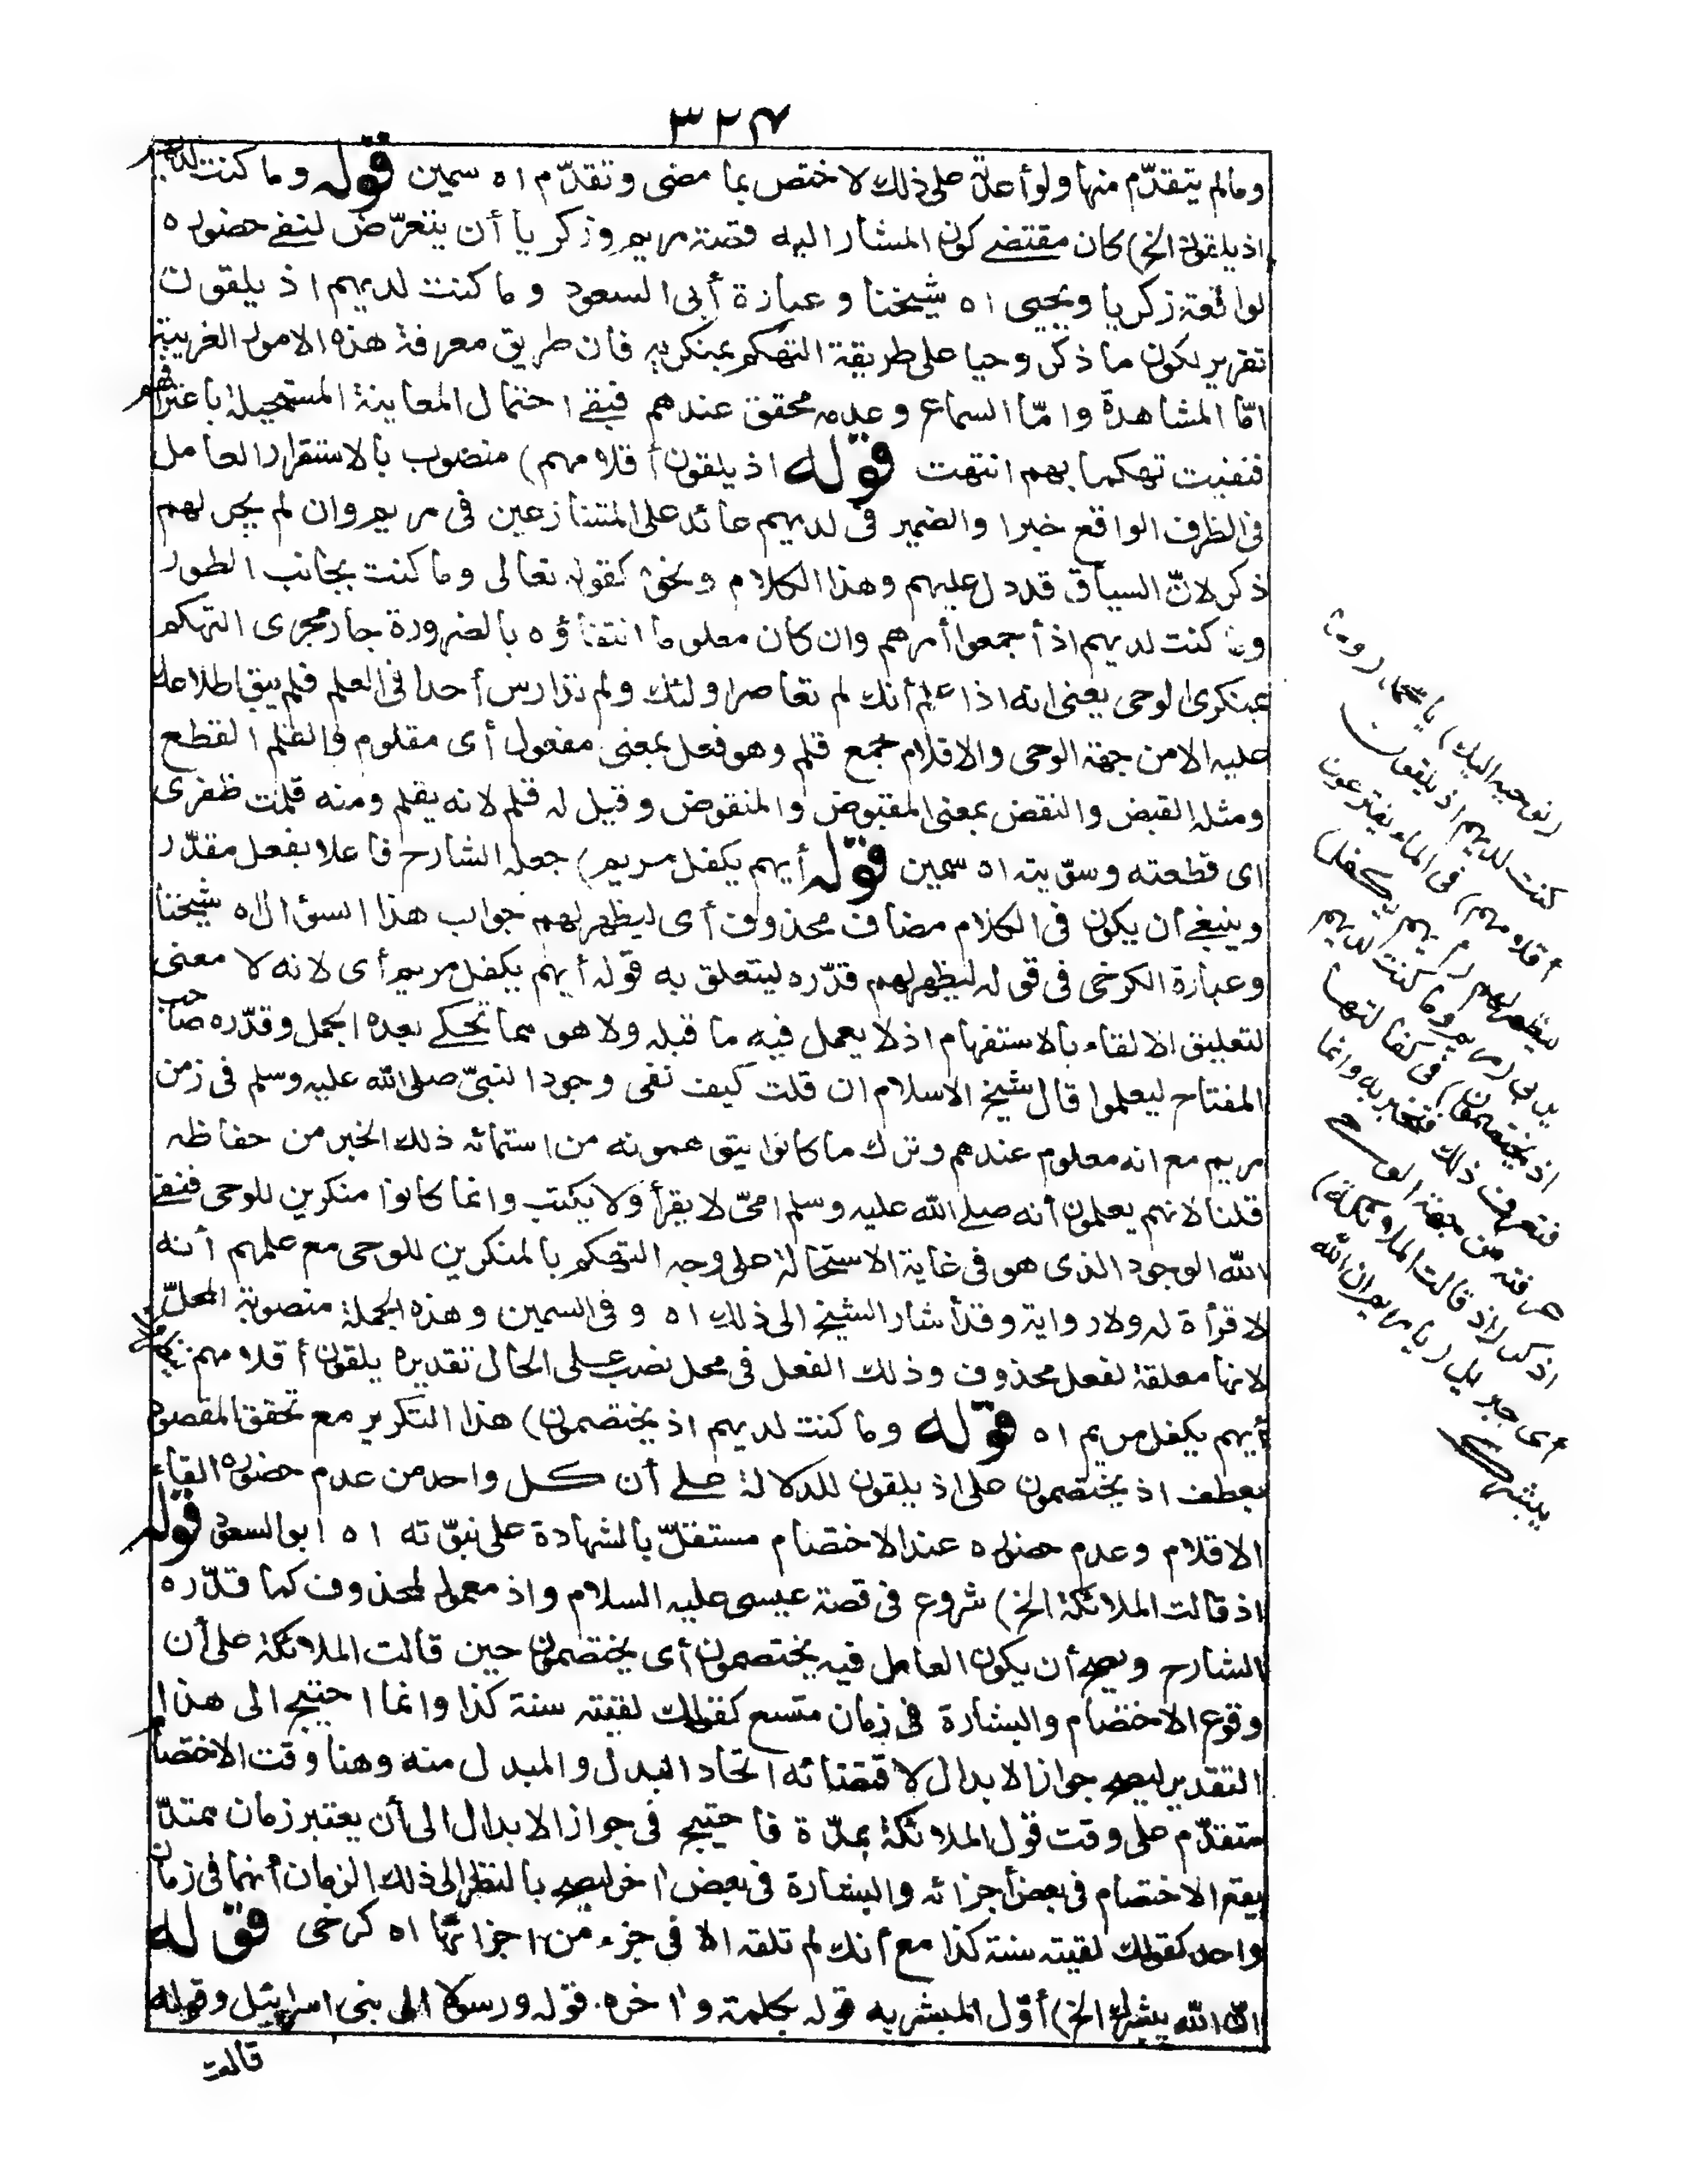 ٣٢٤
ومالم يتقدّم منها ولو أعدته على ذلك لاختص بما مضى وتقدّم اه سمين قوله وما كنت لديهم
اذ يلقون الخ) كان مقتضى كون المشار اليه قصة مريم وزكريا أن يتعرّض لنفى حضوره
لواقعة زكريا ويحيى اه شيخنا وعبارة أبى السعود وما كنت لديهم اذ يلقون
تقرير لكون ما ذكر وحيا على طريقة التهكم بمنكريه فان طريق معرفة هذه الامور الغريبة
امّا المشاهدة وامّا السماع وعدمه محقق عندهم فبقى احتمال المعاينة المستحيلة باعترافهم
فنفيت تهكما بهم انتهت قوله اذ يلقون أقلامهم) منصوب بالاستقرار العامل
فى الظرف الواقع خبرا والضمير فى لديهم عائد على المتنازعين فى مريم وان لم يجر لهم
ذكر لانّ السياق قد دل عليهم وهذا الكلام ونحوه كقوله تعالى وما كنت بجانب الطور
وما كنت لديهم اذ أجمعوا أمرهم وان كان معلوما انتفاؤه بالضرورة جار مجرى التهكم
بمنكرى الوحى يعنى انه اذا علم أنك لم تعاصر اولئك ولم تدارس أحدا فى العلم فلم يبق اطلاعك
عليه الا من جهة الوحى والاقلام جمع قلم وهو فعل بمعنى مفعول أى مقلوم والقلم القطع
ومثله القبض والنقض بمعنى المقبوض والمنقوض وقيل له قلم لانه يقلم ومنه قلمت ظفرى
اى قطعته وسوّيته اه سمين قوله أيهم يكفل مريم) جعله الشارح فاعلا بفعل مقدّر
وينبغى أن يكون فى الكلام مضاف محذوف أى ليظهر لهم جواب هذا السؤال اه شيخنا
وعبارة الكرخى فى قوله ليظهر لهم قدّره ليتعلق به قوله أيهم يكفل مريم أى لانه لا معنى
لتعليق الالقاء بالاستفهام اذ لا يعمل فيه ما قبله ولا هو مما تحكى بعده الجمل وقدّره صاحب
المفتاح ليعلموا قال شيخ الاسلام ان قلت كيف نفى وجود النبىّ صلى الله عليه وسلم فى زمن
مريم مع انه معلوم عندهم وترك ما كانوا يتوهمونه من استمائه ذلك الخبر من حفاظه
قلنا لانهم يعلمون أنه صلى الله عليه وسلم امىّ لا يقرأ ولا يكتب وانما كانوا منكرين للوحى فنفى
الله الوجود الذى هو فى غاية الاستحالة على وجه التهكم بالمنكرين للوحى مع علمهم أنه
لا قرأة له ولا رواية وقد أشار الشيخ الى ذلك اه وفى السمين وهذه الجملة منصوبة المحلّ
لانها معلقة لفعل محذوف وذلك الفعل فى محل نصب على الحال تقديره يلقون أقلامهم ينظرون
أيهم يكفل مريم اه قوله وما كنت لديهم اذ يختصمون) هذا التكرير مع تحقق المقصود
بعطف اذ يختصمون على اذ يلقون للدلالة على أن كل واحد من عدم حضوره القاء
الاقلام وعدم حضوره عند الاختصام مستقلّ بالشهادة على نبوّته اه ابو السعود قوله
اذ قالت الملائكة الخ) شروع فى قصة عيسى عليه السلام واذ معمول لمحذوف كما قدّره
الشارح ويصح أن يكون العامل فيه يختصمون أى يختصمون حين قالت الملائكة على أن
وقوع الاختصام والبشارة فى زمان متسع كقولك لقيته سنة كذا وانما احتيج الى هذا
التقدير ليصح جواز الابدال لاقتضائه اتحاد البدل والمبدل منه وهنا وقت الاختصام
متقدّم على وقت قول الملائكة بمدّة فاحتيج فى جواز الابدال الى أن يعتبر زمان ممتدّ
يقع الاختصام فى بعض أجزائه والبشارة فى بعض اخر ليصح بالنظر الى ذلك الزمان أنهما فى زمان
واحد كقولك لقيته سنة كذا مع أنك لم تلقه الا فى جزء من اجزائها اه كرخى قوله
انّ الله يبشرك الخ) أوّل المبشر به قوله بكلمة واخره قوله ورسولا الى بنى اسرائيل وقوله
قالت
(نوحيه اليك) يا محمد (وما
كنت لديهم اذ يلقون
أقلامهم) فى الماء يقترعون
ليظهر لهم (أيهم يكفل)
يربى (مريم وما كنت لديهم
اذ يختصمون) فى كفالتها
فتعرف ذلك فتخبر به وانما
عرفته من جهة الوحى
اذكر (اذ قالت الملائكة)
أى جبريل (يا مريم ان الله
يبشرك